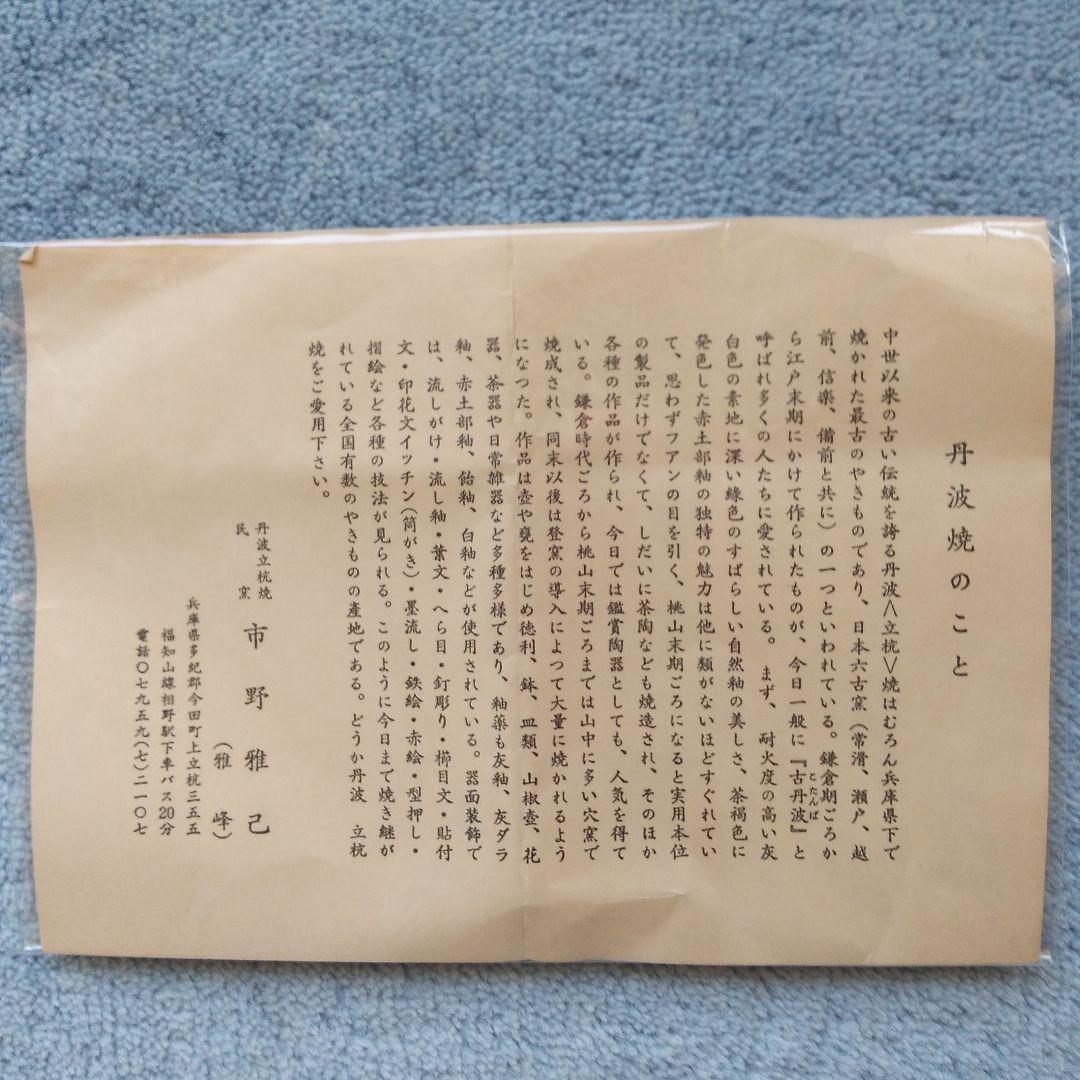 丹波焼のこと
中世以来の古い伝統を誇る丹波＜立杭＞焼はむろん兵庫県下で
焼かれた最古のやきものであり、日本六古窯（常滑、瀬戸、越
前、信楽、備前と共に）の一つといわれている。鎌倉期ごろか
ら江戸末期にかけて作られたものが、今日一般に『古丹波』と
こたんば
呼ばれ多くの人たちに愛されている。　まず、耐火度の高い灰
白色の素地に深い緑色のすばらしい自然釉の美しさ、茶褐色に
発色した赤土部釉の独特の魅力は他に類がないほどすぐれてい
て、思わずフアンの目を引く、桃山末期ごろになると実用本位
の製品だけでなくて、しだいに茶陶なども焼造され、そのほか
各種の作品が作られ、今日では鑑賞陶器としても、人気を得て
いる。鎌倉時代ごろから桃山末期ごろまでは山中に多い穴窯で
焼成され、同末以後は登窯の導入によつて大量に焼かれるよう
になつた。作品は壺や甕をはじめ徳利、鉢、皿類、山椒壺、花
器、茶器や日常雑器など多種多様であり、釉薬も灰釉、灰ダラ
釉、赤土部釉、飴釉、白釉などが使用されている。器面装飾で
は、流しがけ・流し釉・葉文・へら目・釘彫り・櫛目文・貼付
文・印花文イッチン（筒がき）・墨流し・鉄絵・赤絵・型押し・
摺絵など各種の技法が見られる。このように今日まで焼き継が
れている全国有数のやきものの産地である。どうか丹波　立杭
焼をご愛用下さい。
丹波立杭焼
民窯
市野雅己
（雅峰）
兵庫県多紀郡今田町上立杭三五五
福知山線相野駅下車バス20分
電話〇七九五九（七）二一〇七